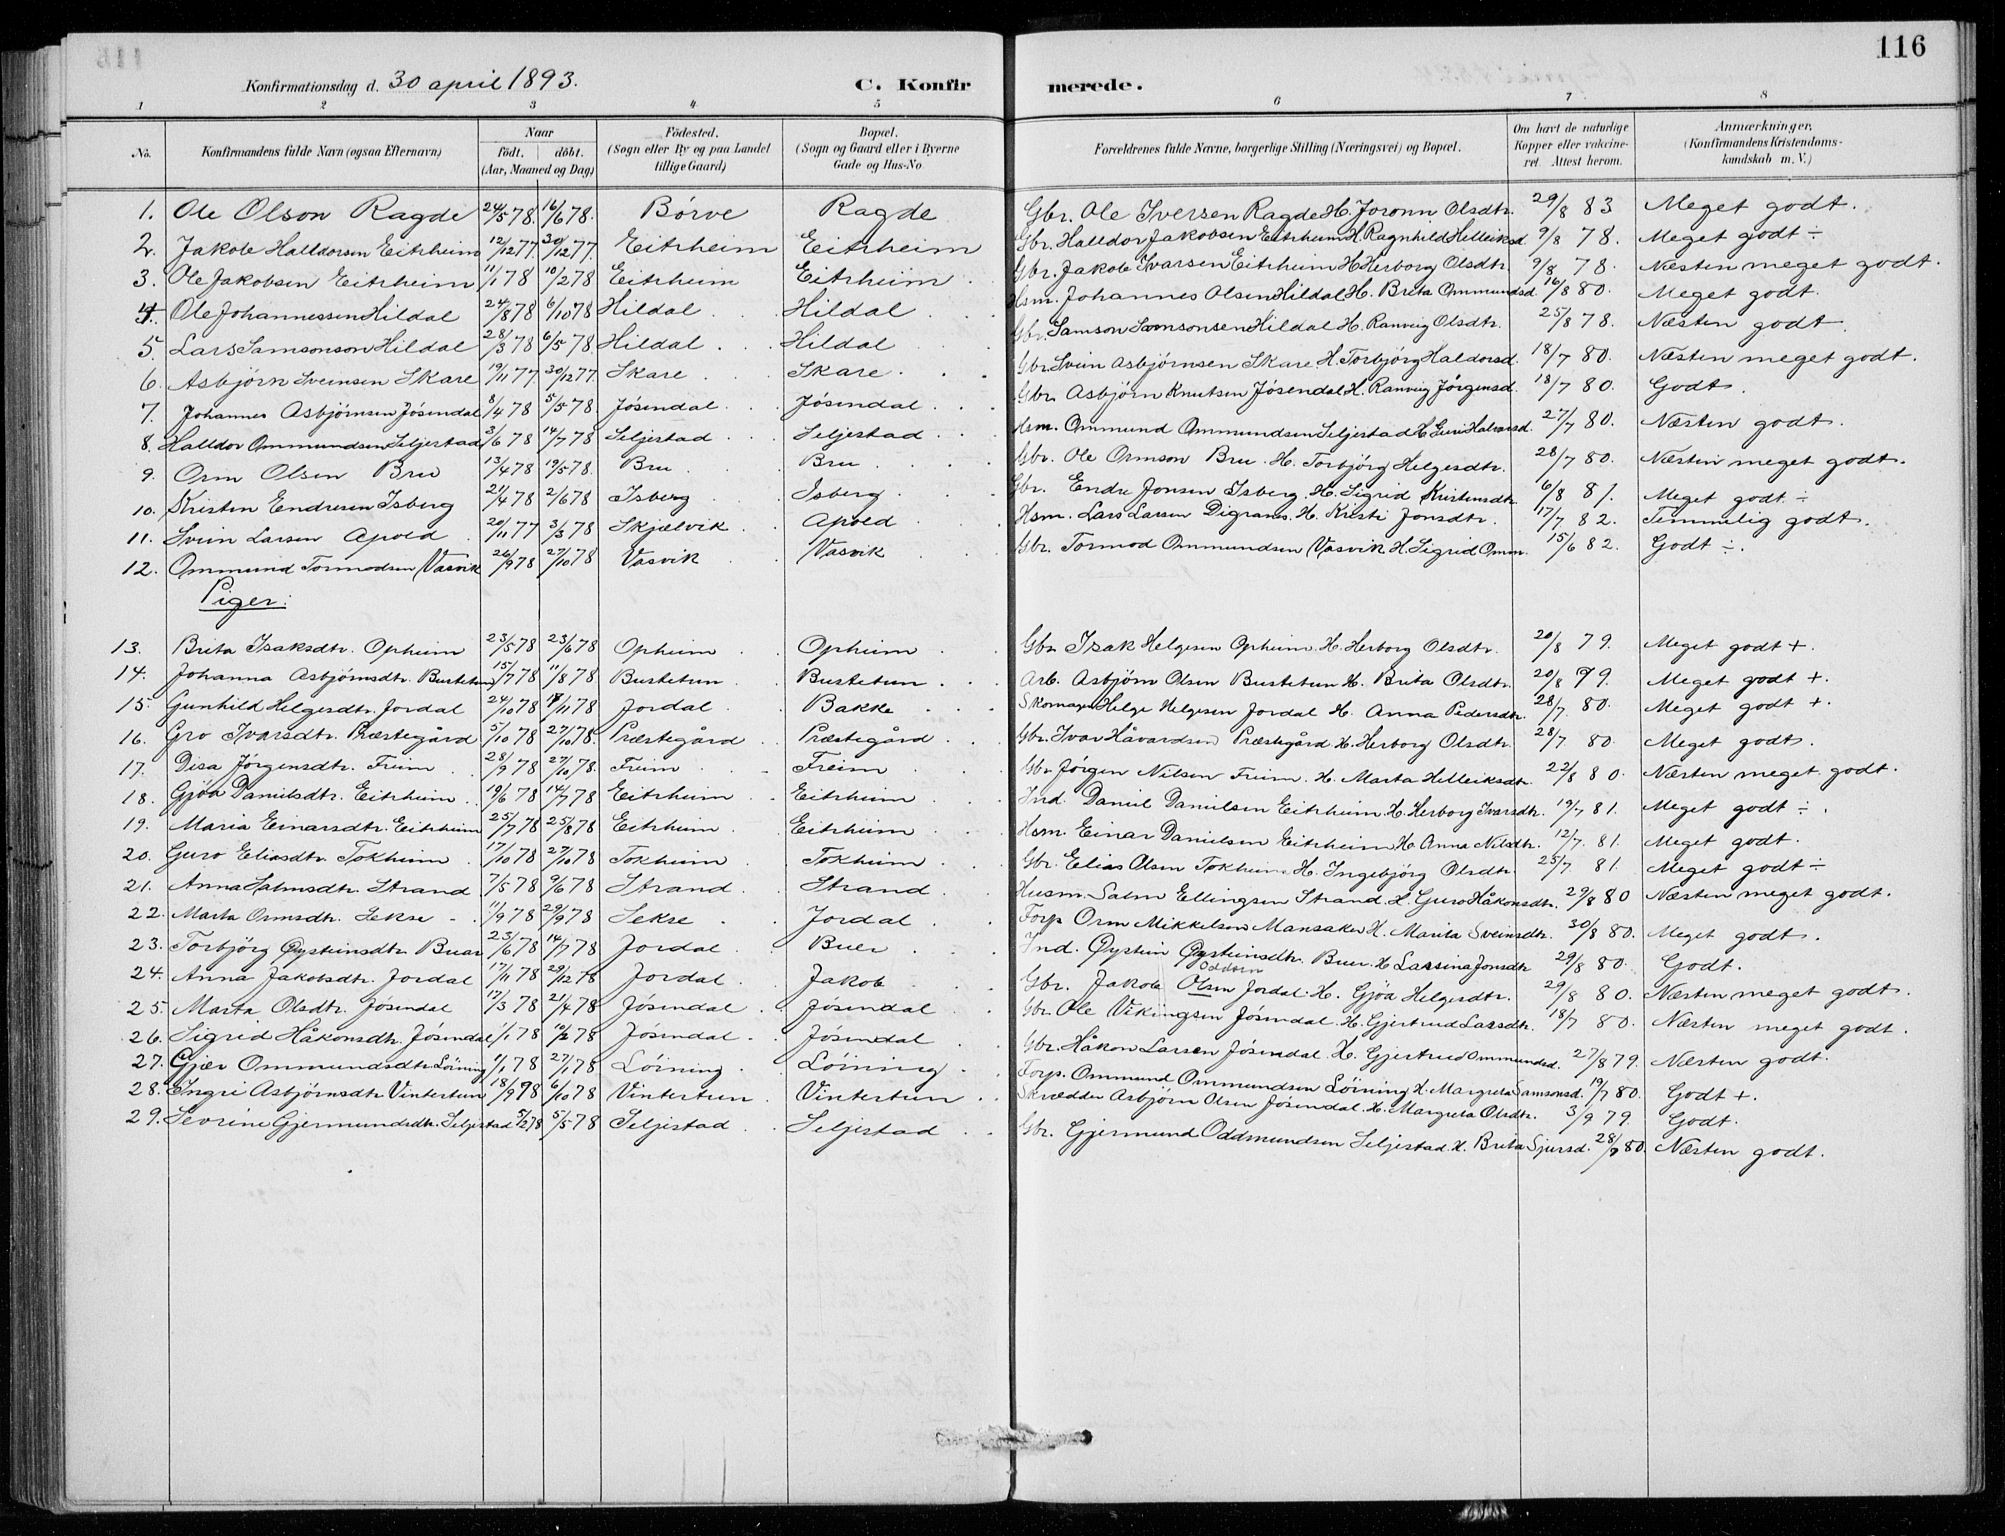 116
Konfirmationsdag d. 30 april 1893. C. Konfirmerede.
1 2 3 4 5 6 7 8
No. Konfirmandens fulde Navn (ogsaa Efternavn) Naar födt. döbt. (Aar, Maaned og Dag) Födested. (Sogn eller By og paa Landet tillige Gaard) Bopæl. (Sogn og Gaard eller i Byerne Gade og Hus-No. Forældrenes fulde Navne, borgerlige Stilling (Næringsvei) og Bopæl. Om havt de naturlige Kopper eller vakcineret. Attest herom. Anmærkninger. (Konfirmandens Kristendomskundskab m. V.)
1. Ole Olson Ragde 24/5 78. 16/6 78. Börve Ragde Gbr. Ole Iversen Ragde H. Joronn Olsdtr. 29/8 83 Meget godt.
2. Jakob Halldorsen Eitrheim 12/12 77. 30/12 77. Eitrheim Eitrheim Gbr. Halldor Jakobsen Eitrheim H. Ragnhild Helleiksd. 9/8 78. Meget godt ÷
3. Ole Jakobsen Eitrheim 11/1 78 10/2 78 Eitrheim Eitrheim Gbr. Jakob Ivarsen Eitrheim H. Herborg Olsdtr. 9/8 78. Næsten meget godt.
4. Ole Johannessen Hildal 24/8 78 6/10 78 Hildal Hildal Hsm. Johannes Olsen Hildal H. Brita Ommundsd. 16/8 80. Meget godt.
5. Lars Samsonson Hildal 28/3 78 6/5 78 Hildal Hildal Gbr. Samson Samsonsen Hildal H. Ranveig Olsdtr. 25/8 78. Næsten godt.
6. Asbjörn Sveinsen Skare 19/11 77 30/12 77. Skare Skare Gbr. Svein Asbjörnsen Skare H. Torbjörg Haldorsd. 18/7 80. Næsten meget godt.
7. Johannes Asbjörnsen Jösendal 8/4 78 5/5 78. Jösendal Jösendal Gbr. Asbjörn Knutsen Jösendal H. Ranveig Jörgensd. 18/7 80. Godt.
8. Halldor Ommundsen Seljestad 3/6 78 14/7 78 Seljestad Seljestad Hsm. Ommund Ommundsen Seljestad H. Guri Halvorsd. 27/7 80. Næsten godt.
9. Orm Olsen Bru 13/4 78 19/5 78. Bru Bru Gbr. Ole Ormson Bru. H. Torbjörg Helgesdtr. 28/7 80. Næsten meget godt.
10. Kristen Endresen Isberg 21/4 78 2/6 78 Isberg Isberg Gbr. Endre Jonsen Isberg. H. Sigrid Kristensdtr. 6/8 81. Meget godt ÷
11. Svein Larsen Apold 20/11 77 3/3 78 Skjælvik Apold Hsm. Lars Larsen Digranes. H. Kristi Jonsdtr. 17/7 82. Temmelig godt.
12. Ommund Tormodsen Vasvik 26/9 78 27/10 78 Vasvik Vasvik Gbr. Tormod Ommundsen Vasvik H. Sigrid Omm. 15/6 82. Godt ÷.
Piger:
13. Brita Isaksdtr. Opheim 23/5 78 23/6 78 Opheim Opheim Gbr. Isak Helgesen Opheim. H. Herborg Olsdtr. 20/8 79. Meget godt +.
14. Johanna Asbjörnsdtr. Bustetun 15/7 78 11/8 78 Bustetun Bustetun Arb. Asbjörn Olsen Bustetun H. Brita Olsdtr. 20/8 79. Meget godt +.
15. Gunhild Helgesdtr. Jordal 24/10 78 17/11 78 Jordal Bakke Skomager Helge Helgesen Jordal H. Anna Pedersdtr. 28/7 80. Meget godt +.
16. Gro Ivarsdtr. Præstegård 5/10 78 27/10 78. Præstegård Præstegård Gbr. Ivar Håvardsen Præstegård H. Herborg Olsdtr. 28/7 80. Meget godt.
17. Disa Jörgensdtr. Freim 28/9 78 27/10 78. Freim Freim Gbr. Jörgen Nilsen Freim. H. Marta Helleiksdtr. 22/8 80. Næsten meget godt.
18. Gjöa Danielsdtr. Eitrheim 19/6 78 14/7 78 Eitrheim Eitrheim Ind. Daniel Danielsen Eitrheim H. Herborg Ivarsdtr. 19/7 81. Meget godt ÷.
19. Maria Einarsdtr. Eitrheim 25/7 78 25/8 78 Eitrheim Eitrheim Hsm. Einar Danielsen Eitrheim H. Anna Nilsdtr. 12/7. 81. Meget godt.
20. Guro Eliasdtr. Tokheim 17/10 78 27/10 78 Tokheim Tokheim Gbr. Elias Olsen Tokheim H. Ingebjörg Olsdtr. 25/7 81 Meget godt ÷
21. Anna Salmsdtr. Strand 7/5 78 9/6 78 Strand Strand Husm. Salm Ellingsen Strand. H. Guro Håkonsdtr. 29/8 80 Næsten meget godt.
22. Marta Ormsdtr. Sekse 11/9 78 29/9 78 Sekse Jordal Forp. Orm Mikkelsen Mansaker H. Marita Sveinsdtr. 30/8 80. Meget godt.
23. Torbjörg Øysteinsdtr. Buar 23/6 78 14/7 78 Jordal Buer Ind. Øystein Øysteinsdtr. Buer H. Larsina Jonsdtr. 29/8 80. Godt.
24. Anna Jakobsdtr. Jordal 17/11 78 29/12 78 Jordal Jakob Gbr. Jakob Olsen Oddsen Jordal. H. Gjöa Helgesdtr. 29/8 80. Næsten meget godt.
25. Marta Olsdtr. Jösendal 17/3 78 21/4 78 Jösendal Jösendal Gbr. Ole Vikingsen Jösendal. H. Gjertrud Larsdtr. 18/7 80. Næsten meget godt.
26. Sigrid Håkonsdtr. Jösendal 1/1 78 10/2 78 Jösendal Jösendal Gbr. Håkon Larsen Jösendal H. Gjertrud Ommundsd. 27/8 79. Næsten godt.
27. Gjær Ommundsdtr. Löining 1/1 78 27/1 78 Löining Löining Forp. Ommund Ommundsen Löining H. Margreta Samsonsd. 19/7 80. Godt +.
28. Ingri Asbjörnsdtr. Vintertun 18/9 78 6/10 78 Vintertun Vintertun Skrædder Asbjörn Olsen Jösendal. H. Margreta Olsdtr. 3/9 79. Godt.
29. Sevrine Gjermundsdtr. Seljestad 5/2 78 5/5 78 Seljestad Seljestad Gbr. Gjermund Oddmundsen Seljestad. H. Brita Sjursd. 28/7 80. Næsten godt.